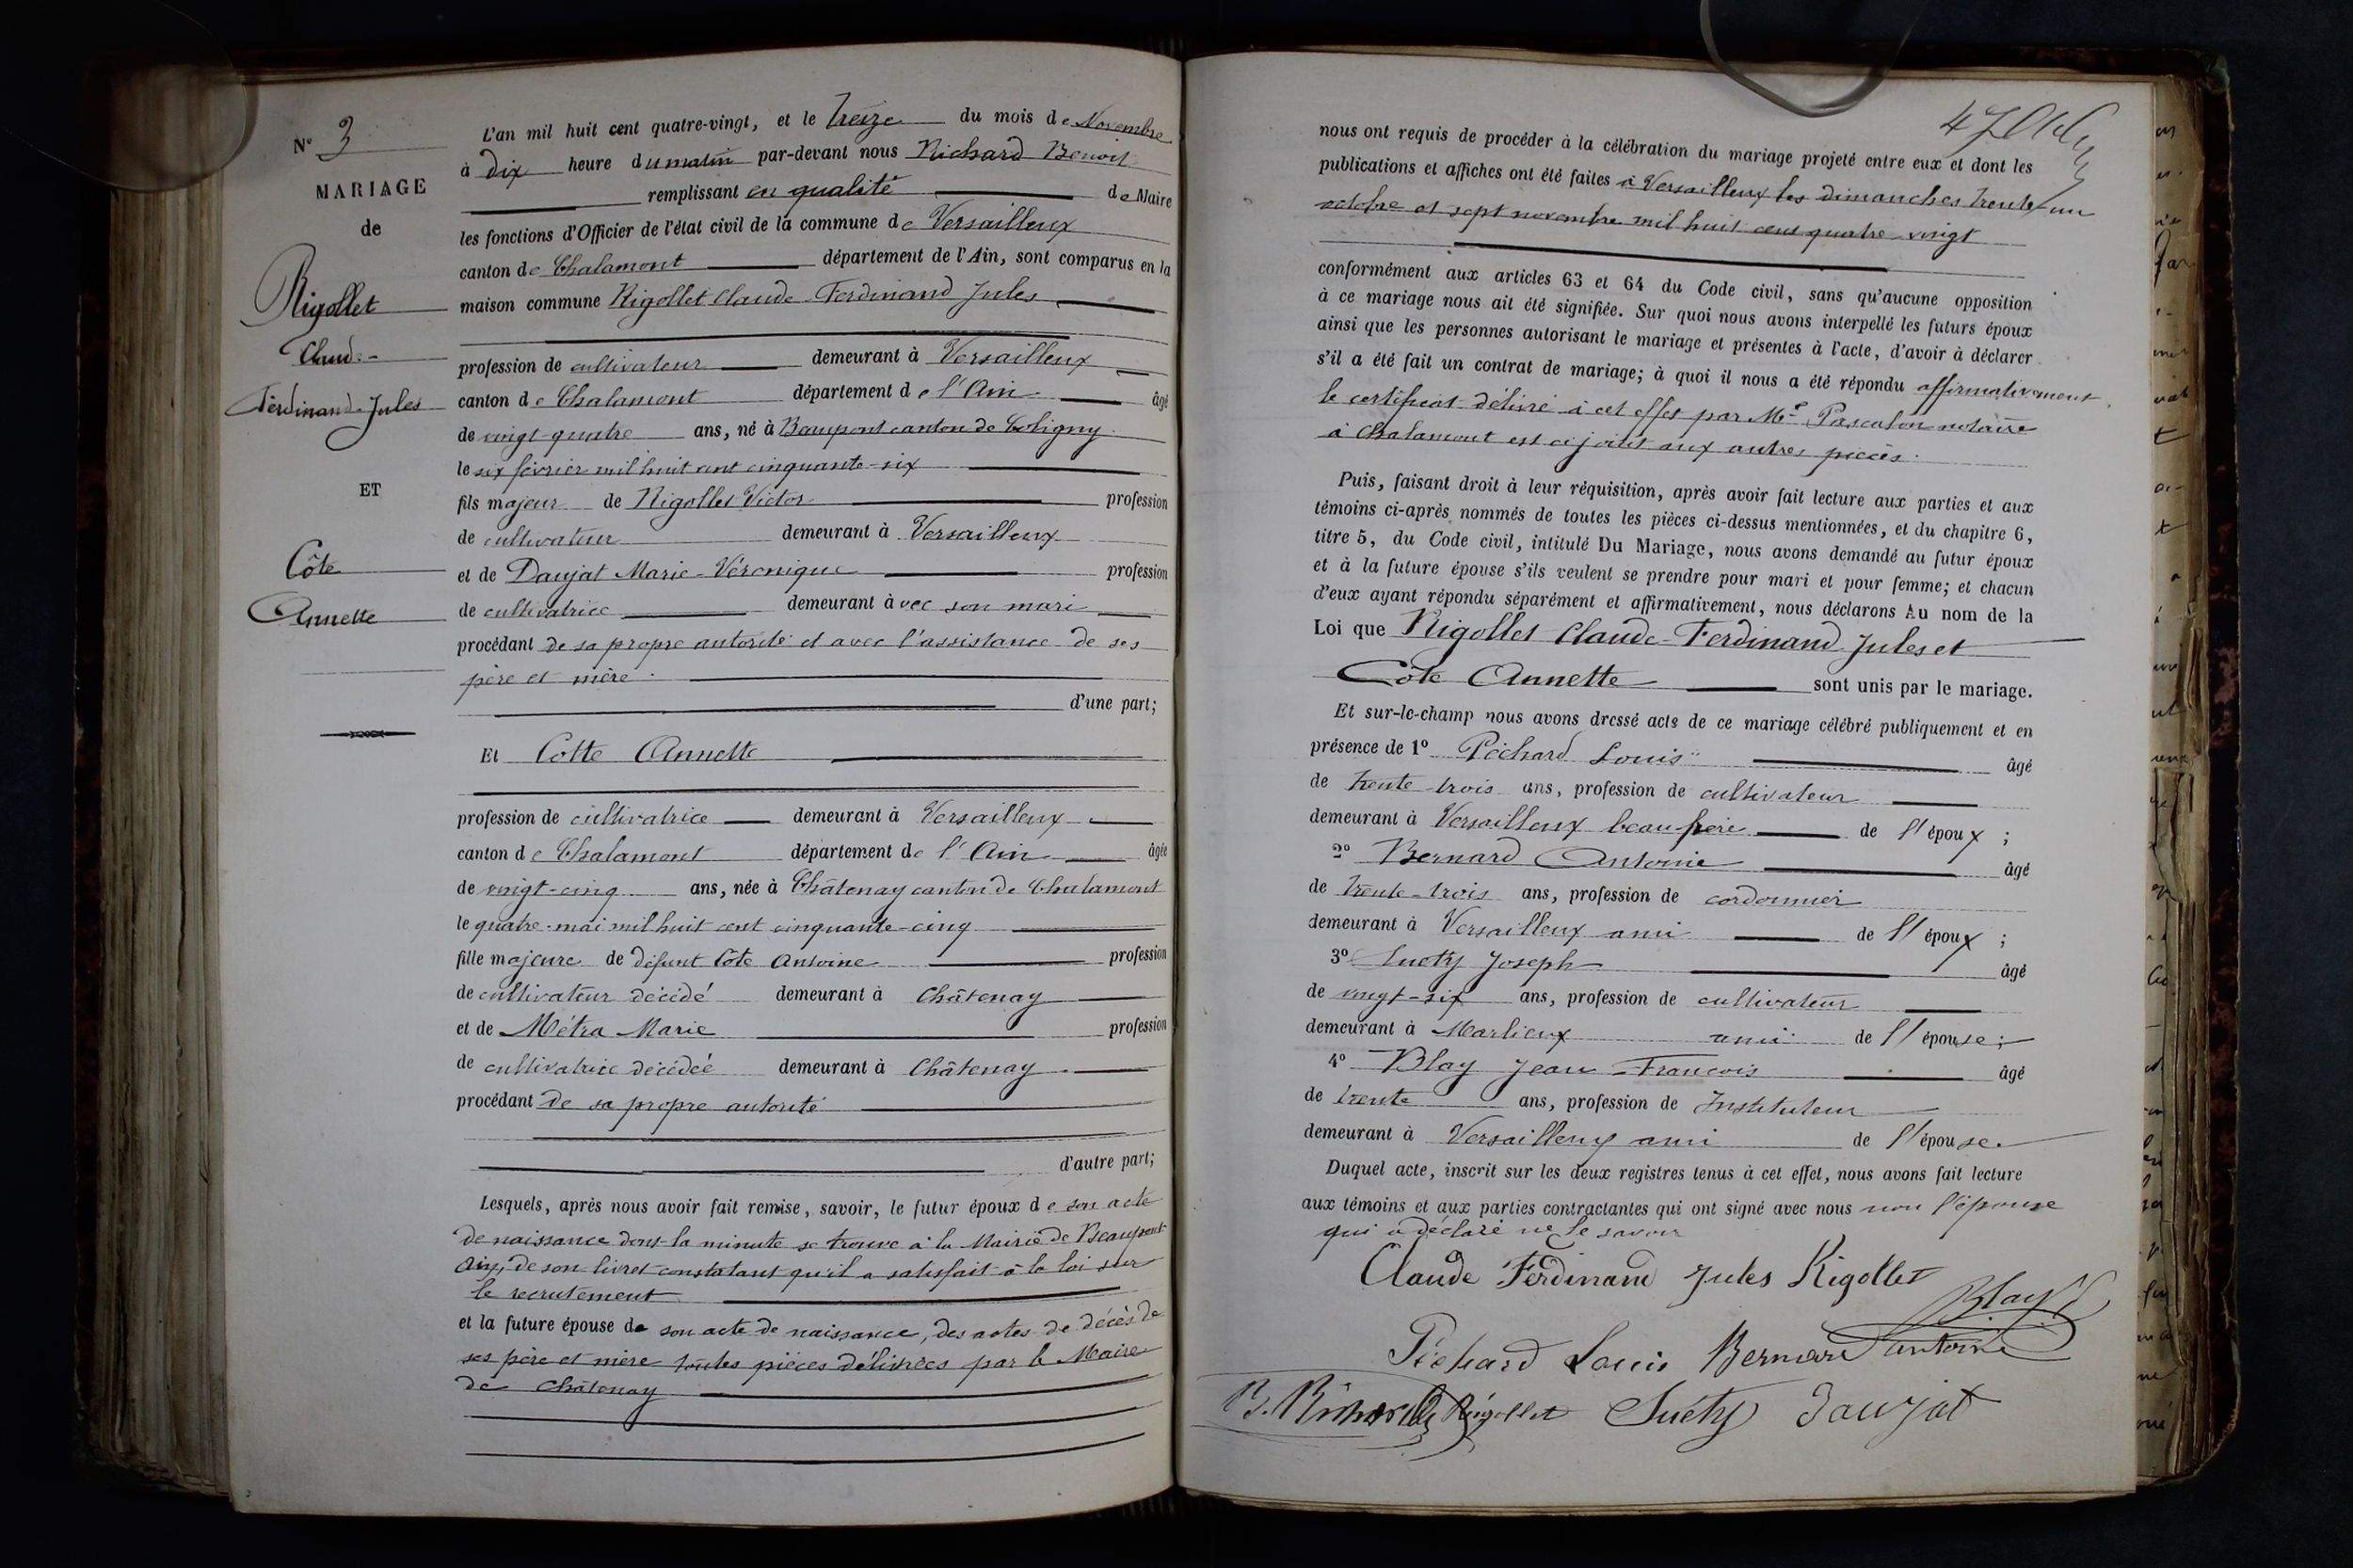 N° 3
MARIAGE
de
Rigollet
Claude
Ferdinand-Jules
ET
Côte
Annette
L'an mil huit cent quatre-vingt, et le treize du mois de Novembre
à dix heure du matin par-devant nous Richard Benoit
remplissant en qualité de Maire
les fonctions d'Officier de l'état civil de la commune de Versailleux
canton de Chalamont département de l'Ain, sont comparus en la
maison commune Rigollet Claude-Ferdinand Jules
profession de cultivateur demeurant à Versailleux
canton de Chalamont département de l'Ain âgé
de vingt-quatre ans, né à Beaupont canton de Coligny
le six février mil huit cent cinquante-six
fils majeur de Rigollet Victor profession
de cultivateur demeurant à Versailleux
et de Daujat Marie-Véronique profession
de cultivatrice demeurant avec son mari
procédant de sa propre autorité et avec l'assistance de ses
père et mère.
d'une part;
Et Cotte Annette
profession de cultivatrice demeurant à Versailleux
canton de Chalamont département de l'Ain âgée
de vingt-cinq ans, née à Châtenay canton de Chalamont
le quatre mai mil huit cent cinquante-cinq
fille majeure de défunt Côte Antoine profession
de cultivateur décédé demeurant à Châtenay
et de Métra Marie profession
de cultivatrice décédée demeurant à Châtenay
procédant de sa propre autorité
d'autre part;
Lesquels, après nous avoir fait remise, savoir, le futur époux de son acte
de naissance dont la minute se trouve à la Mairie de Beaupont
Ain, de son livret constatant qu'il a satisfait à la loi sur
le recrutement
et la future épouse de son acte de naissance, des actes de décès de
ses père et mère toutes pièces délivrées par le Maire
de Châtenay
47
nous ont requis de procéder à la célébration du mariage projeté entre eux et dont les
publications et affiches ont été faites à Versailleux les dimanches trente-un
octobre et sept novembre mil huit cent quatre-vingt
conformément aux articles 63 et 64 du Code civil, sans qu'aucune opposition
à ce mariage nous ait été signifiée. Sur quoi nous avons interpellé les futurs époux
ainsi que les personnes autorisant le mariage et présentes à l'acte, d'avoir à déclarer
s'il a été fait un contrat de mariage; à quoi il nous a été répondu affirmativement
le certificat délivré à cet effet par Me Pascalon notaire
à Chalamont est ci joint aux autres pièces.
Puis, faisant droit à leur réquisition, après avoir fait lecture aux parties et aux
témoins ci-après nommés de toutes les pièces ci-dessus mentionnées, et du chapitre 6,
titre 5, du Code civil, intitulé Du Mariage, nous avons demandé au futur époux
et à la future épouse s'ils veulent se prendre pour mari et pour femme; et chacun
d'eux ayant répondu séparément et affirmativement, nous déclarons Au nom de la
Loi que Rigollet Claude-Ferdinand Jules et
Côte Annette sont unis par le mariage.
Et sur-le-champ nous avons dressé acte de ce mariage célébré publiquement et en
présence de 1° Péchard Louis âgé
de trente trois ans, profession de cultivateur
demeurant à Versailleux beau frère de l'époux;
2° Bernard Antoine âgé
de trente-trois ans, profession de cordonnier
demeurant à Versailleux ami de l'époux;
3° Suéty Joseph âgé
de vingt-six ans, profession de cultivateur
demeurant à Marlieux ami de l'épouse;
4° Blay Jean-François âgé
de trente ans, profession de Instituteur
demeurant à Versailleux ami de l'épouse.
Duquel acte, inscrit sur les deux registres tenus à cet effet, nous avons fait lecture
aux témoins et aux parties contractantes qui ont signé avec nous non l'épouse
qui a déclaré ne le savoir
Claude Ferdinand Jules Rigollet
Blay
Péchard Louis Bernard Antoine
B. Richard Rigollet Suéty Daujat